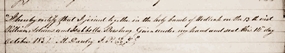 I hereby certify that I joined together in the holy bands of Wedlock on the 13th inst
William Holmes and Isabella Given under my hand and seal this 15 day
October 182